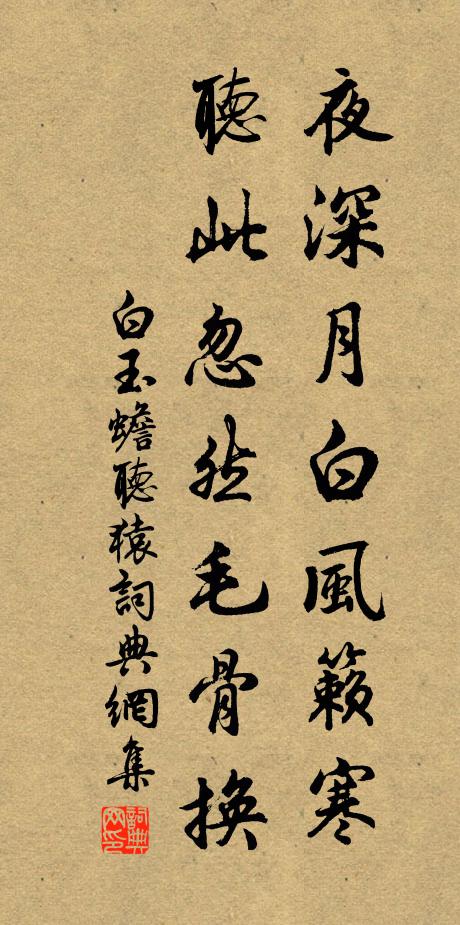 夜深月白風籟寒
聽此忽然毛骨換
白玉蟾聽猿詞典網集
詞典網印